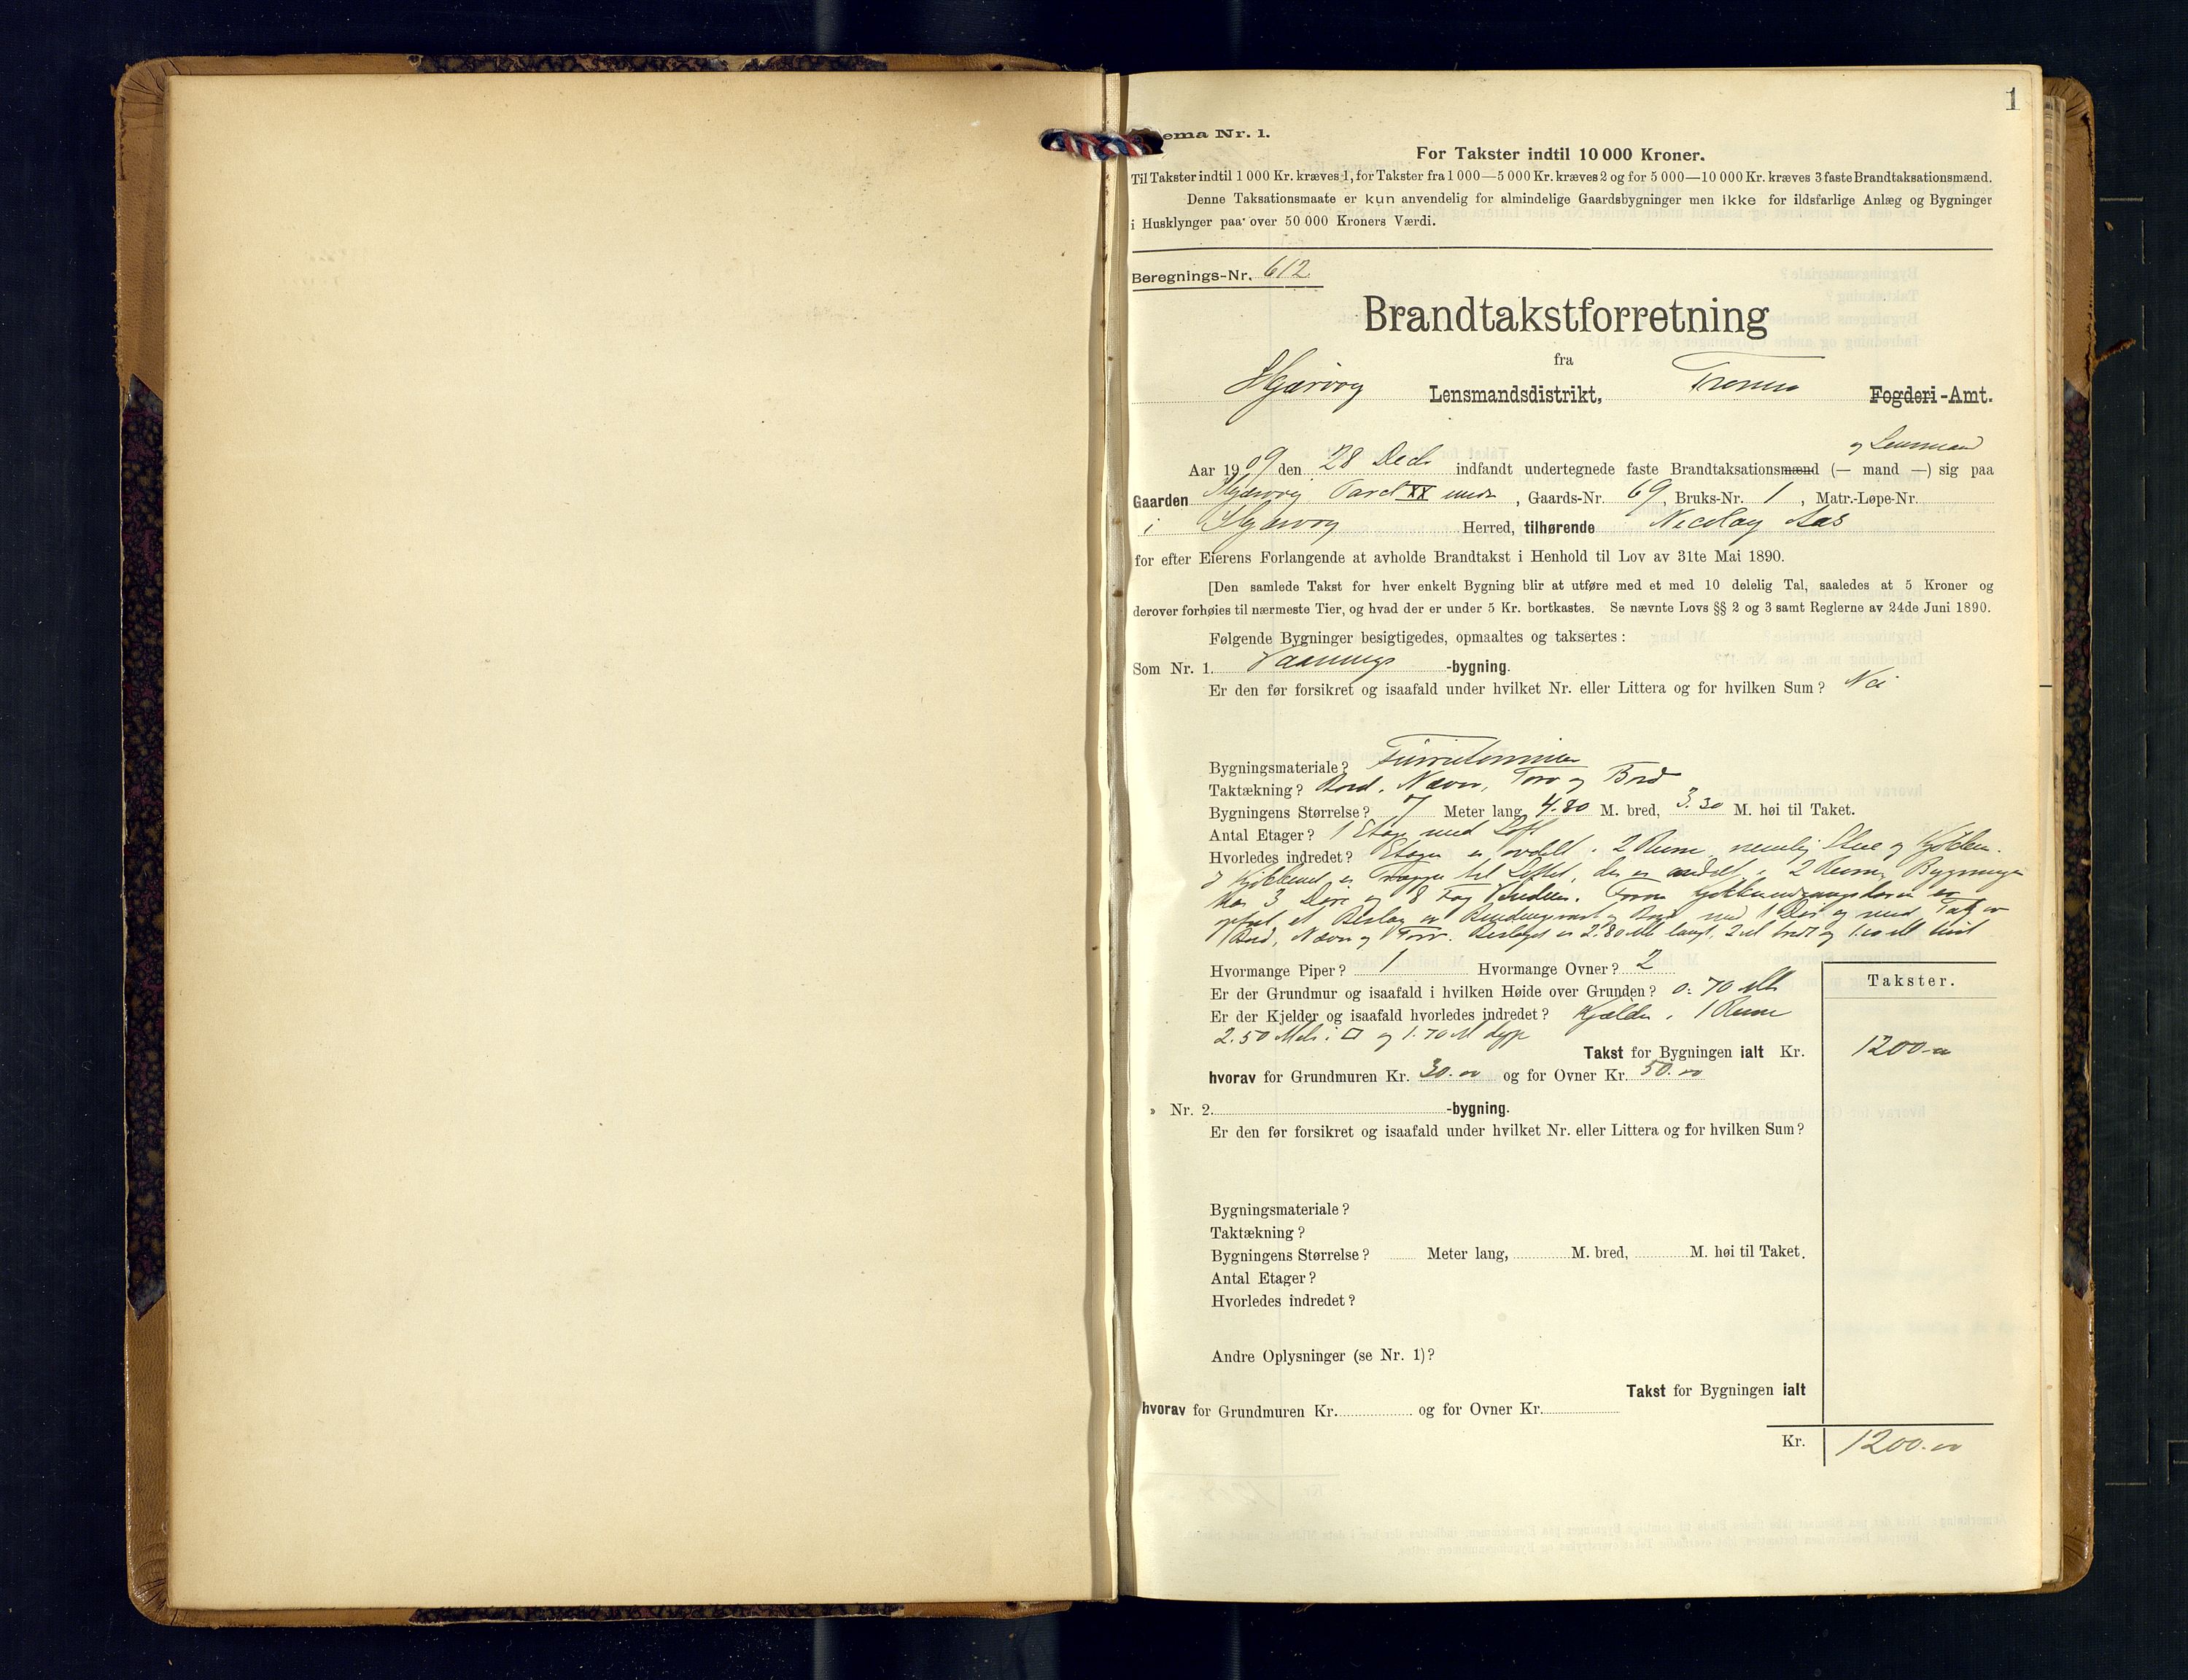 1
ema Nr. 1.
For Takster indtil 10 000 Kroner.
Til Takster indtil 1 000 Kr. kræves 1, for Takster fra 1 000—5 000 Kr. kræves 2 og for 5 000—10 000 Kr. kræves 3 faste Brandtaksationsmænd.
Denne Taksationsmaate er kun anvendelig for almindelige Gaardsbygninger men ikke for ildsfarlige Anlæg og Bygninger
i Husklynger paa over 50 000 Kroners Værdi.
Beregnings-Nr. 612
Brandtakstforretning
fra
Skjærvøy Lensmandsdistrikt, Tromsø Fogderi-Amt.
og Lensmand
Aar 1909 den 28 Decbr indfandt undertegnede faste Brandtaksationsmænd (— mand —) sig paa
Gaarden Skjærvøy Parcel XX, Gaards-Nr. 69, Bruks-Nr. 1, Matr.-Løpe-Nr.
i Skjærvøy Herred, tilhørende Nicolay Aas
for efter Eierens Forlangende at avholde Brandtakst i Henhold til Lov av 31te Mai 1890.
[Den samlede Takst for hver enkelt Bygning blir at utføre med et med 10 delelig Tal, saaledes at 5 Kroner og
derover forhøies til nærmeste Tier, og hvad der er under 5 Kr. bortkastes. Se nævnte Lovs §§ 2 og 3 samt Reglerne av 24de Juni 1890.
Følgende Bygninger besigtigedes, opmaaltes og taksertes:
Som Nr. 1. Vaanings -bygning.
Er den før forsikret og isaafald under hvilket Nr. eller Littera og for hvilken Sum? Nei
Bygningsmateriale? Furutømmer
Taktækning? Bord, Næver, Torv og Bord
Bygningens Størrelse? 7 Meter lang 4.80 M. bred, 3.30 M. høi til Taket.
Antal Etager? 1 Etage med Loft
Hvorledes indredet? Etagen er avdelt i 2 Rum nemlig Stue og Kjøkken.
I Kjøkkenet er Trappe til Loftet, der er avdelt i 2 Rum. Bygningen
har 3 Døre og 8 Fag Vinduer. Foran Kjøkkenindgangsdøren er
opført et Bislag av Bindingsværk og Bord med 1 Dør og med Tak av
Bord, Næver og Torv. Bislaget er 2.80 M langt, 2 M bredt og
Hvormange Piper? 1 Hvormange Ovner? 2
Takster.
Er der Grundmur og isaafald i hvilken Høide over Grunden? 0.70 M
Er der Kjelder og isaafald hvorledes indredet? Kjælder i 1 Rum
2.50 Mtr i □ og 1.70 M dyp
Takst for Bygningen ialt Kr. 1200.00
hvorav for Grundmuren Kr. 30.00 og for Ovner Kr. 50.00
» Nr. 2. -bygning.
Er den før forsikret og isaafald under hvilket Nr. eller Littera og for hvilken Sum?
Bygningsmateriale?
Taktækning?
Bygningens Størrelse? Meter lang, M. bred, M. høi til Taket.
Antal Etager?
Hvorledes indredet?
Andre Oplysninger (se Nr. 1)?
Takst for Bygningen ialt
hvorav for Grundmuren Kr. og for Ovner Kr.
Kr. 1200.00